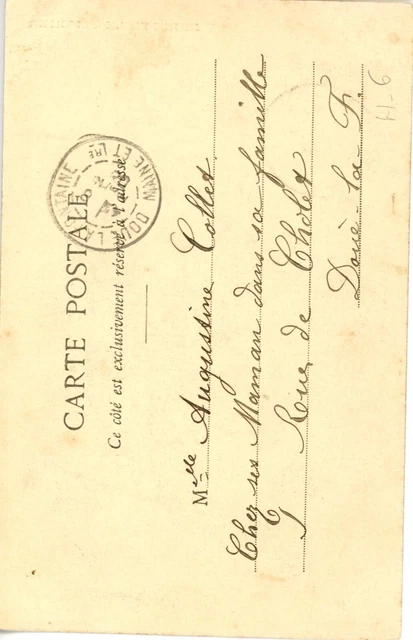 CARTE POSTALE
Ce côté est exclusivement réservé à l'adresse
DOUÉ LA FONTAINE
MAINE ET LOIRE
Mlle Augustine Collet
Chez ses Maman dans sa famille
Rue de Cholet
Doué-la-F.
H-6